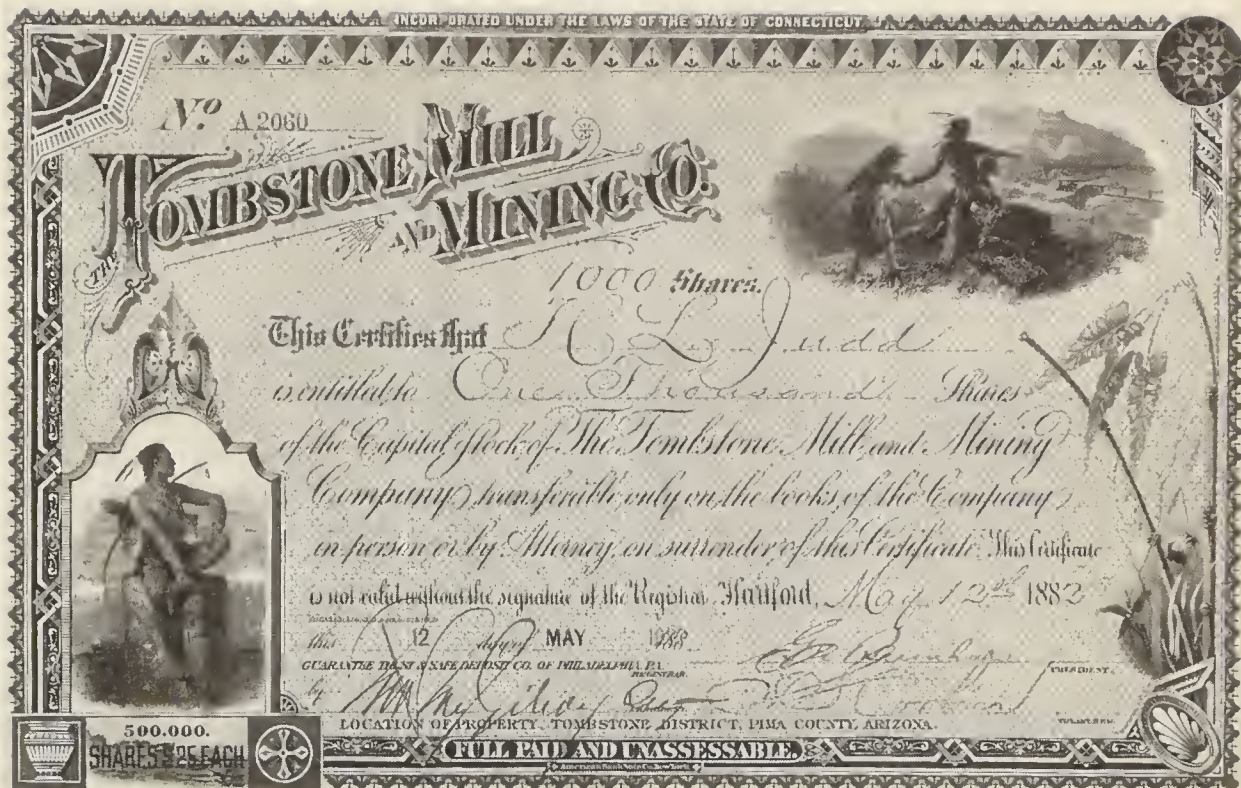 INCORPORATED UNDER THE LAWS OF THE STATE OF CONNECTICUT
No. A 2060
THE TOMBSTONE MILL
AND MINING CO.
1000 Shares.
This Certifies that R L Judd
is entitled to One Thousand Shares
of the Capital Stock of The Tombstone Mill and Mining
Company, transferable only on the books of the Company
in person or by Attorney on surrender of this Certificate. This Certificate
is not valid without the signature of the Registrar. Hartford, May 12th 1882
this 12 day of MAY
GUARANTEE TRUST & SAFE DEPOSIT CO. OF PHILADELPHIA, PA.
REGISTRAR.
PRESIDENT.
by
LOCATION OF PROPERTY, TOMBSTONE DISTRICT, PIMA COUNTY, ARIZONA.
500.000.
SHARES $25 EACH
FULL PAID AND UNASSESSABLE.
American Bank Note Co. New York.